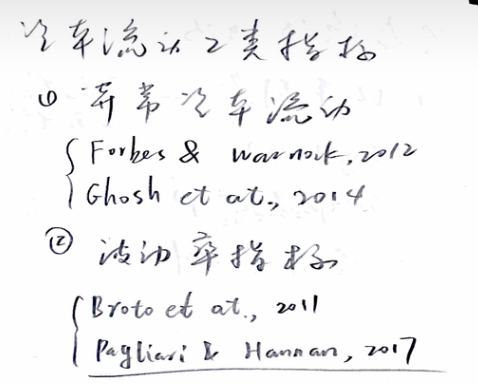 资本流动2类指标
① 异常资本流动
Forbes & Warnock, 2012
Ghosh et at., 2014
② 波动率指标
Broto et at., 2011
Pagliari & Hannan, 2017